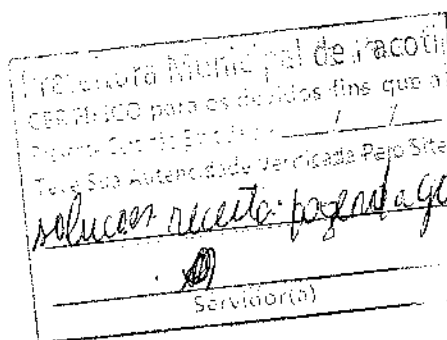 Prefeitura Municipal de Pacoti
CERTIFICO para os devidos fins que a
/ /
Teve Sua Autenticidade Verificada Pelo Site
solucoes receita fazenda go
Servidor(a)